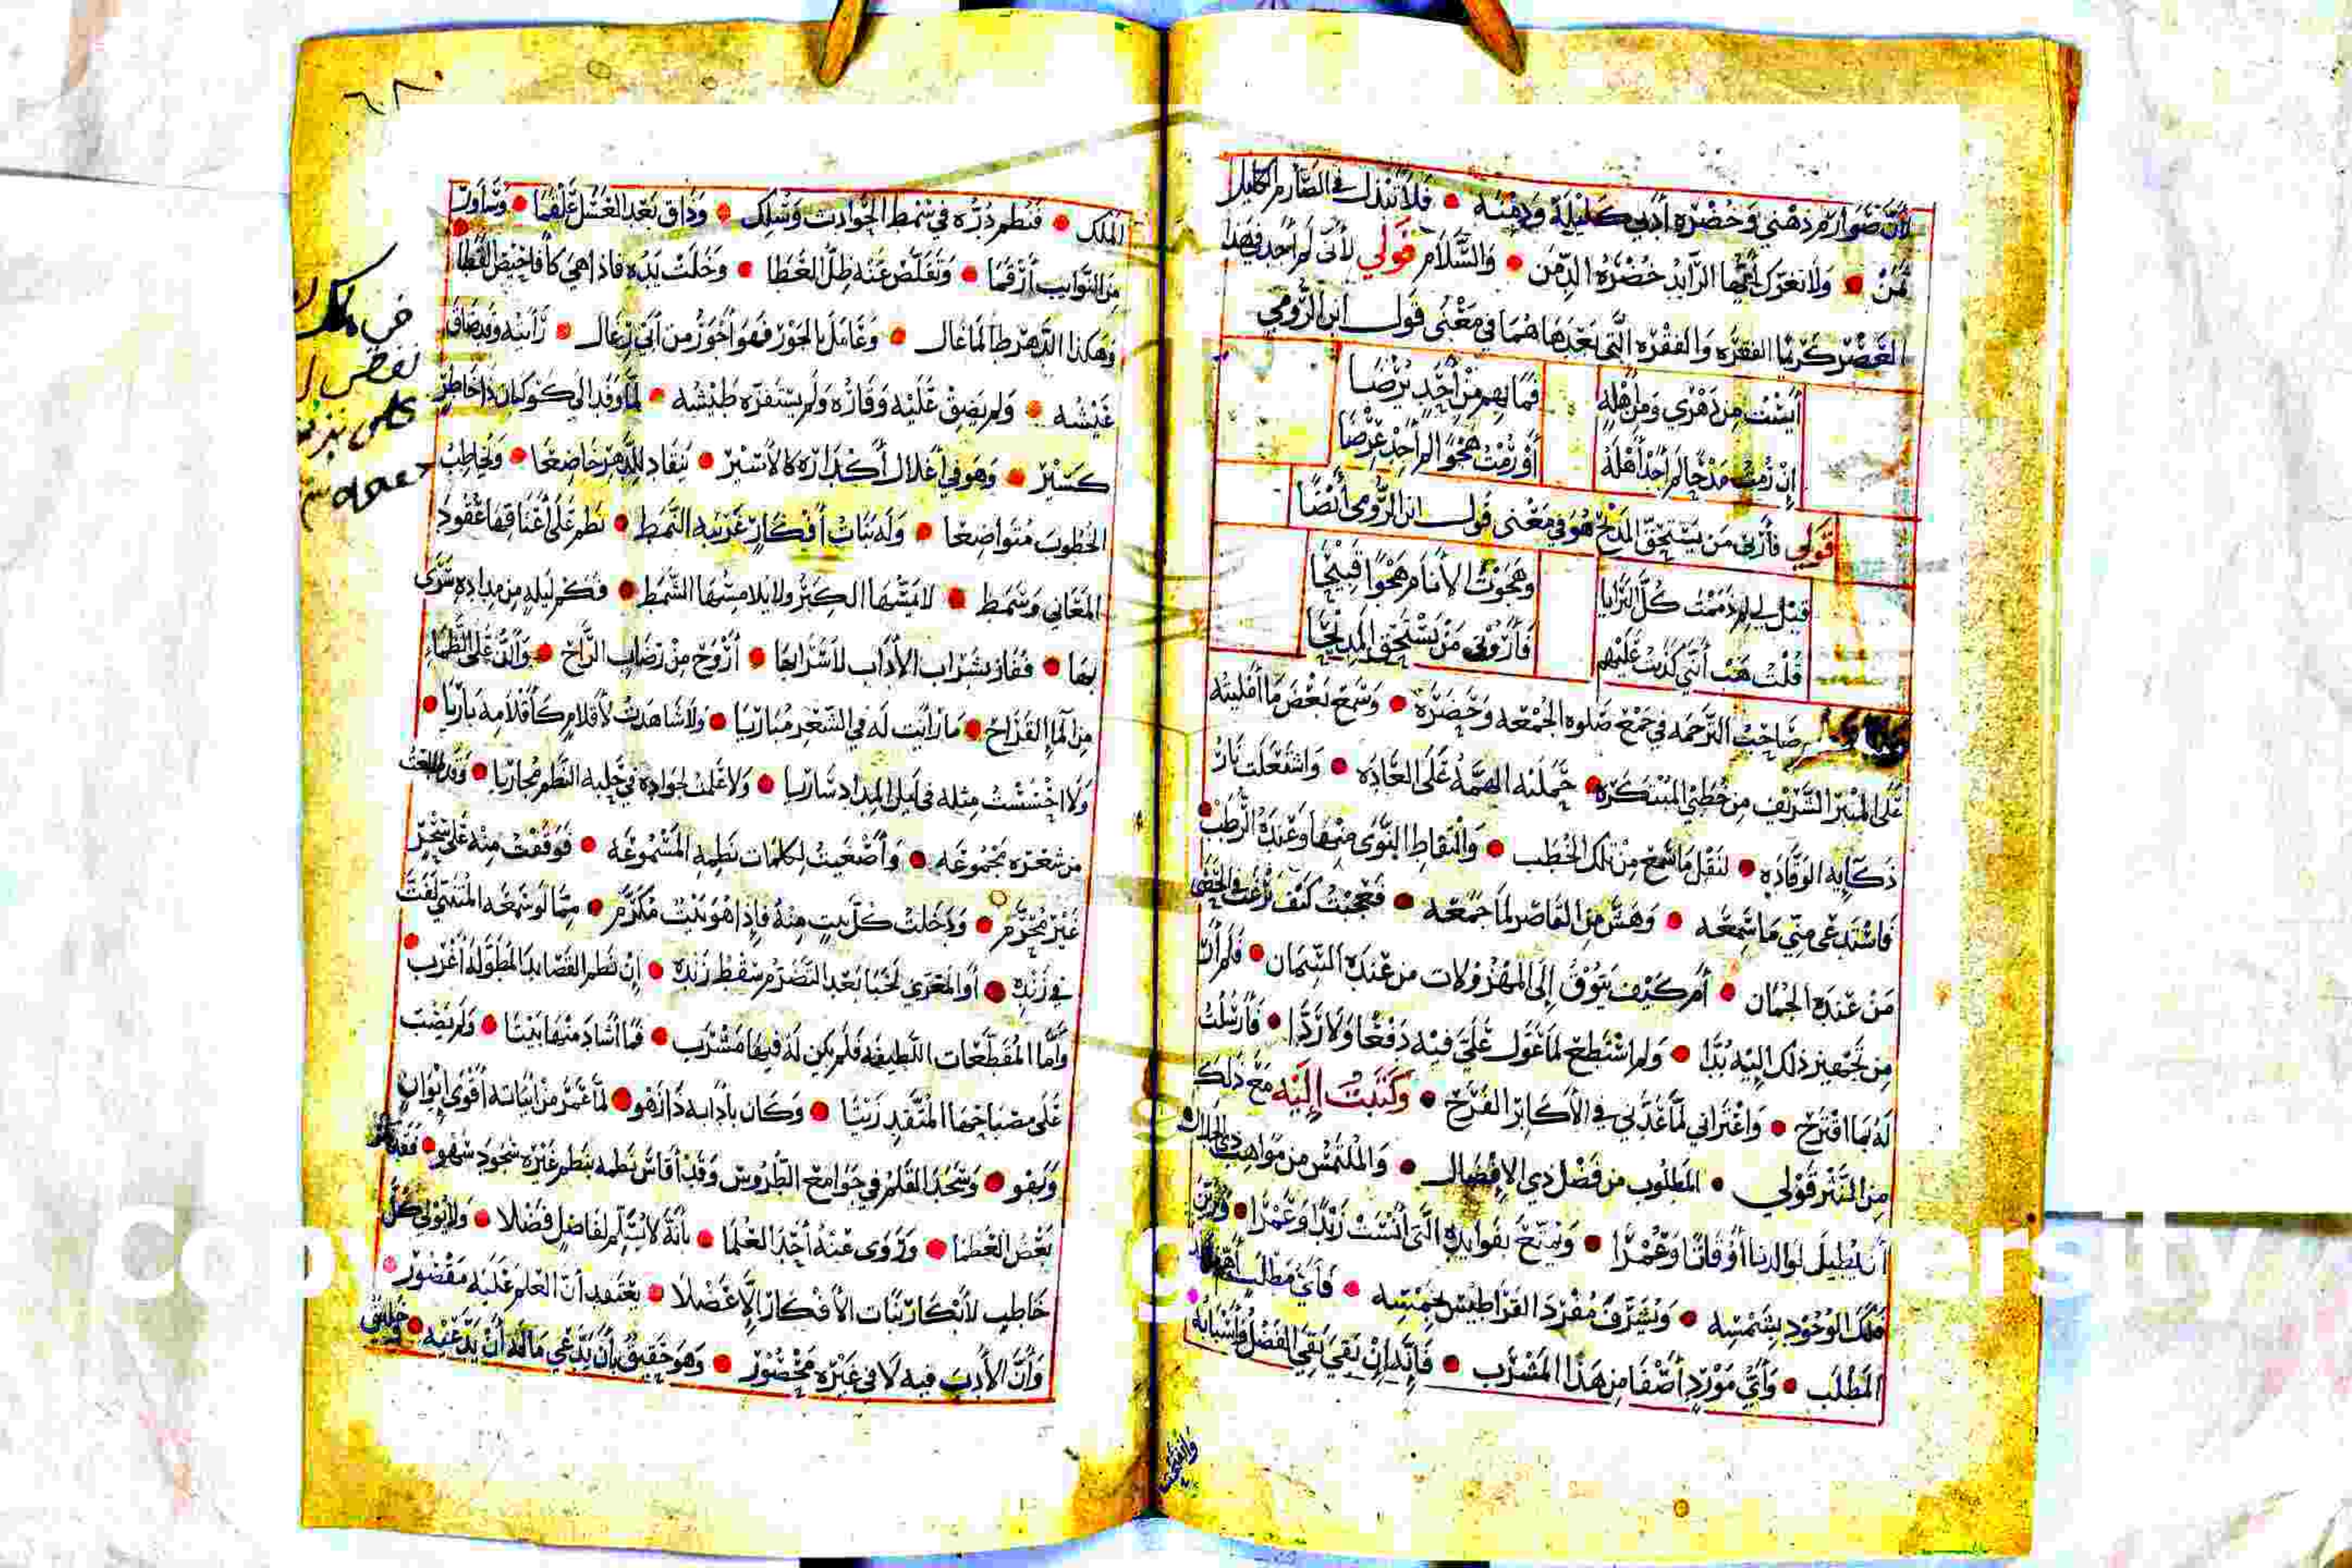 لأن صوارم ذهني وخضره أدبي كليلة ودمنه • فلا تنبذك في الصارم الكليل
ثمن • ولا تغرك أيها الرائد خضرة الدمن • والسلام قولي لأني لم أجد في هذا
العصر كريما الفقره والفقره التي بعدها هما في معنى قول ابن الرومي
أيست من دهري ومن أهله فما بهم من أحد يرضا
إن رمت مدحا لم أجد أهله أو رمت هجوا لم أجد عرضا
قولي فأرني من يستحق المدح هو في معنى قول ابن الرومي أيضا
قيل لي لم ذممت كل البرايا وهجوت الأنام هجوا قبيحا
قلت هب أنني كذبت عليهم فأروني من يستحق المديحا
صاحب الترجمه في جمع صلوه الجمعه وحضره • وسمع بعض ما أمليته
على المنبر الشريف من خطبي المبتكره • حملته الهمة على العاده • واشتعلت نار
ذكايه الوقاده • لنقل ما سمع من تلك الخطب • والتقاط النوى منها وعنده الرطب
فاستدعى مني ما سمعه • وهش من القاصر لما جمعه • فعجبت كيف رغب في الحصى
من عنده الجمان • أم كيف يتوق إلى المهزولات من عنده السمان • فلم أر
من تجهيز ذلك اليه بدا • ولم أستطع لما عول علي فيه دفعا ولا ردا • فأرسلت
له بما اقترح • واعتراني لما عدني في الأكابر الفرح • وكتبت إليه مع ذلك
من النثر قولي • المطلوب من فضل ذي الافضال • والملتمس من مواهب ذي الجلال
أن يطيل لوالدنا أوقاتا وعمرا • ويمتع بفوايده التي أنست زيدا وعمرا •
فلك الوجود بشمسه • ويشرف مفرد القراطيس بخمسه • فأي مطلب
المطلب • وأي مورد أصفا من هذا المشرب • فإنه إن بقي بقي الفضل وأسبابه
الملك • فنظم درره في سمط الحوادث وسلك • وذاق بعد العسل علقما • وساور
من النوايب أرقما • وتقلص عنه ظل العطا • وخلت يده فاذا هي كأفاحيص القطا
وهكذا الدهر طالما غال • وعامل بالجور فهو أجور من أبي رغال • رأيته وقد ضاق
عيشه • ولم يضق عليه وقاره ولم يستفزه طيشه • لما وفد الى كوكبان ذا خاطر
كسير • وهو في أغلال أكداره كالأسير • ينقاد للدهر خاضعا • ويخاطب
الخطوب متواضعا • وله بنات أفكار غريبه النمط • نظم على أعناقها عقود
المعاني وسمط • لا يمسها الكبر ولا يلامسها الشمط • فكم ليله من مداده سرى
بها • ففاز بشراب الأداب لا سرابها • أروح من رضاب الراح • وألذ على الظماء
من الماء القراح • ما رأيت له في الشعر مباريا • ولا شاهدت لأقلام كأقلامه باريا •
ولا احسست مثله في ليل المداد ساريا • ولا علمت لجواده في حلبه النظم مجاريا • وقد طالعت
من شعره مجموعه • وأصغيت لكلمات نظمه المسموعه • فوقفت منه على سحر
غير محرم • ودخلت كل بيت منه فإذا هو بيت مكرم • مما لو سمعه المتنبي لفت
في زنده • أو المعري لخبا بعد التضرم سقط زنده • إن نظم القصايد المطولة أغرب •
وأما المقطعات اللطيفه فلم يكن له فيها مشرب • فما أشاد منها بيتا • ولم يصب
على مصباحها المتقد زيتا • وكان بأدابه ذا زهو • لما عمر من ابياته أقوى ايوان
وبهو • وسجد القلم في جوامع الطروس وقد أقاس نظمه بنظم غيره سجود سهو •
بعض العظما • وروى عنه أحد العلما • بأنه لا يسلم لفاضل فضلا • ولا يولي كل
خاطب لأبكار بنات الأفكار الا عضلا • يعتقد أن العلم عليه مقصور •
وأن الأدب فيه لا في غيره محصور • وهو حقيق بأن يدعي ماله أن يدعيه •